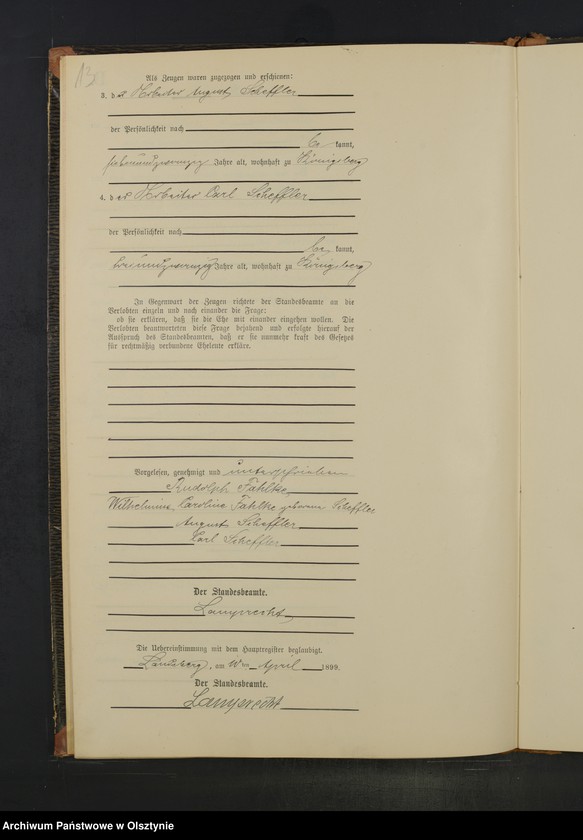 13
Als Zeugen waren zugezogen und erschienen:
3. der Arbeiter August Scheffler
der Persönlichkeit nach
be kannt,
siebenundzwanzig Jahre alt, wohnhaft zu Königsberg
4. der Arbeiter Carl Scheffler
der Persönlichkeit nach
be kannt,
Jahre alt, wohnhaft zu Königsberg
In Gegenwart der Zeugen richtete der Standesbeamte an die
Verlobten einzeln und nach einander die Frage:
ob sie erklären, daß sie die Ehe mit einander eingehen wollen. Die
Verlobten beantworteten diese Frage bejahend und erfolgte hierauf der
Ausspruch des Standesbeamten, daß er sie nunmehr kraft des Gesetzes
für rechtmäßig verbundene Eheleute erkläre.
Vorgelesen, genehmigt und unterschrieben
Rudolph Fahlke,
Wilhelmine Caroline Fahlke geborene Scheffler
August Scheffler
Carl Scheffler
Der Standesbeamte.
Lamprecht
Die Uebereinstimmung mit dem Hauptregister beglaubigt.
Landsberg, am April 1899.
Der Standesbeamte.
Lamprecht
Archiwum Państwowe w Olsztynie